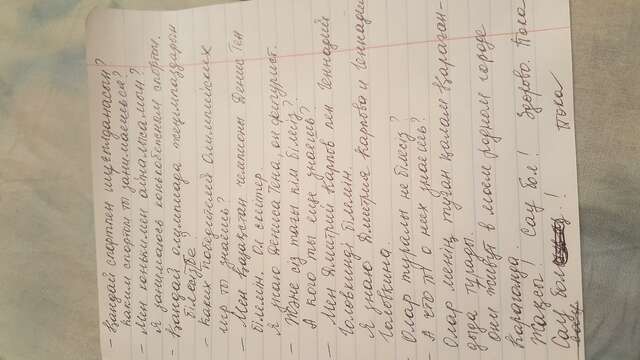 - Қандай спортпен шұғылданасың?
каким спортом ты занимаешься?
- Мен конькимен айналысамын?
Я занимаюсь конькобежным спортом.
- Қандай олимпиада жеңімпаздарын
білесің?
каких победителей Олимпийских
игр ты знаешь?
- Мен Қазақстан чемпионы Денис Тен
білемін. Ол
Я знаю Дениса Тена, он фигурист.
- Және сіз тағы кім білесіз?
А кого ты еще знаешь?
- Мен Дмитрий Карпов пен Геннадий
Головкинді білемін.
Я знаю Дмитрия Карпова и Геннадия
Головкина.
- Олар туралы не білесіз?
А что ты о них знаешь?
Олар менің туған қалам Қараған-
дыда тұрады.
они живут в моем родном городе
Караганда.
Жақсы! Сау бол! Здорово. Пока
Сау бол! Пока